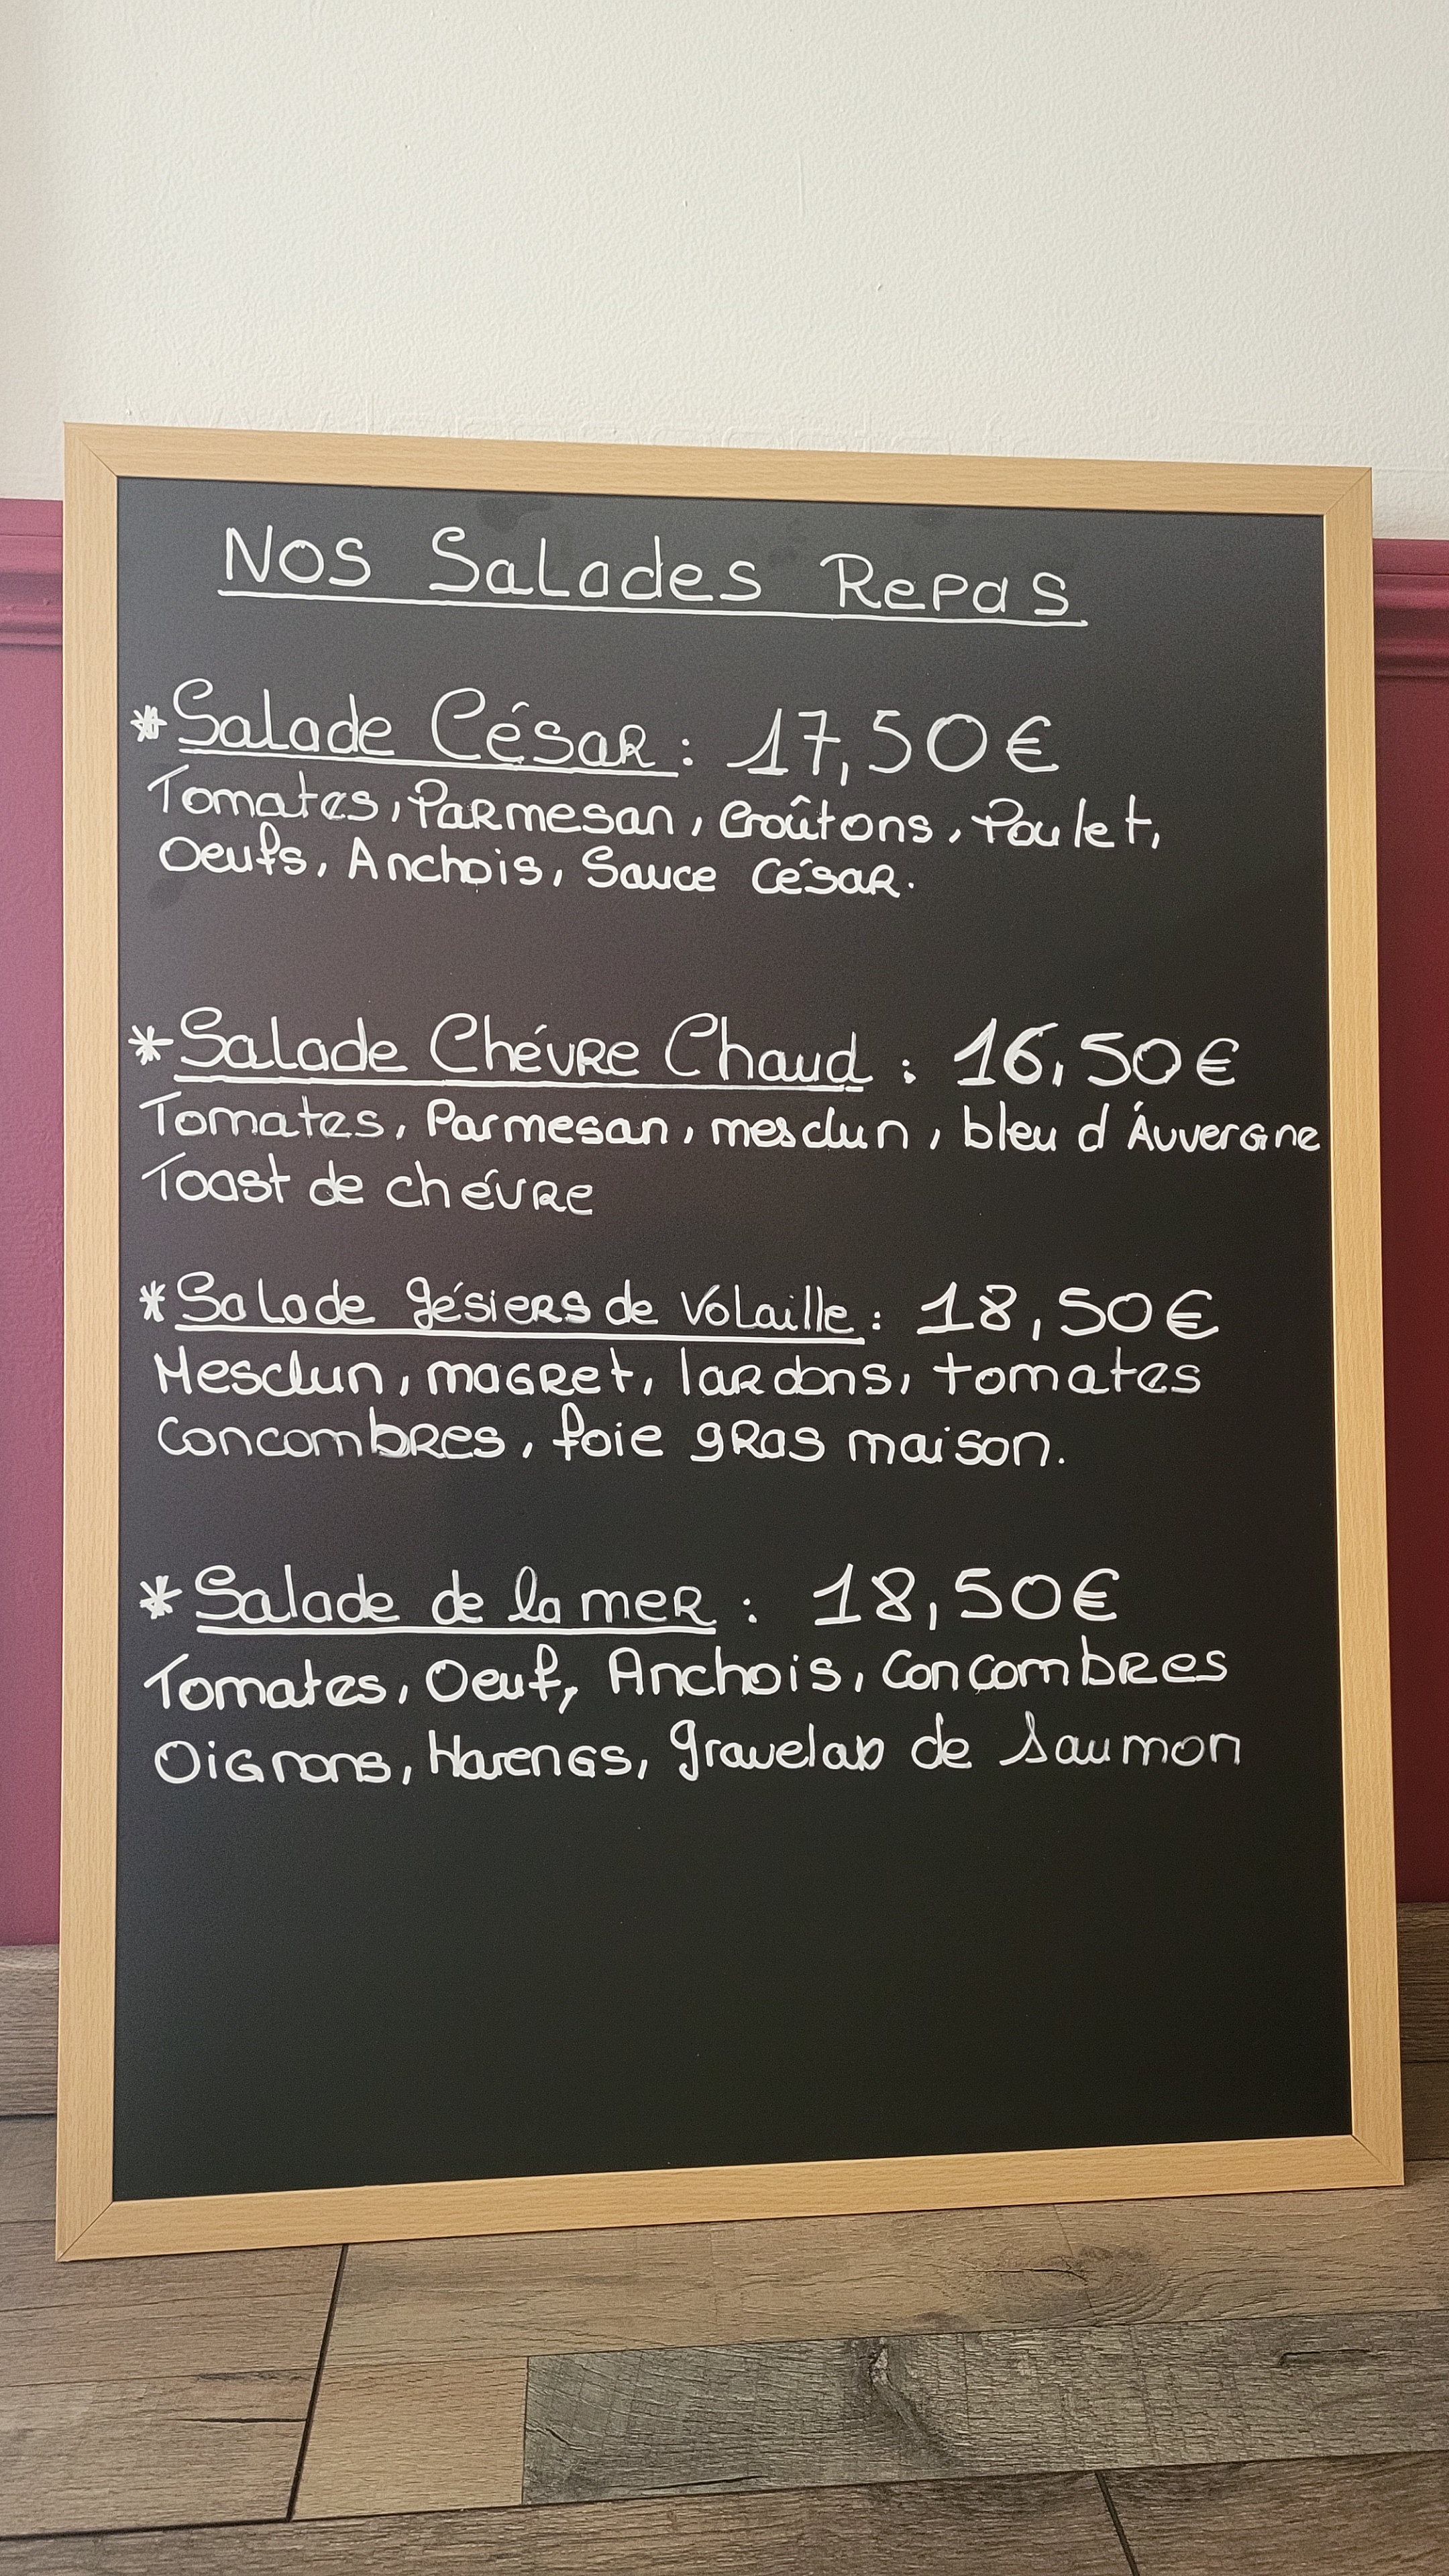 Nos Salades Repas
*Salade César : 17,50€
Tomates, Parmesan, Croûtons, Poulet,
Oeufs, Anchois, Sauce César.
*Salade Chévre Chaud : 16,50€
Tomates, Parmesan, mesclun, bleu d'Auvergne
Toast de chévre
*Salade gésiers de Volaille : 18,50€
Mesclun, magret, lardons, tomates
Concombres, foie gras maison.
*Salade de la mer : 18,50€
Tomates, Oeuf, Anchois, Concombres
Oignons, Harengs, gravelab de Saumon